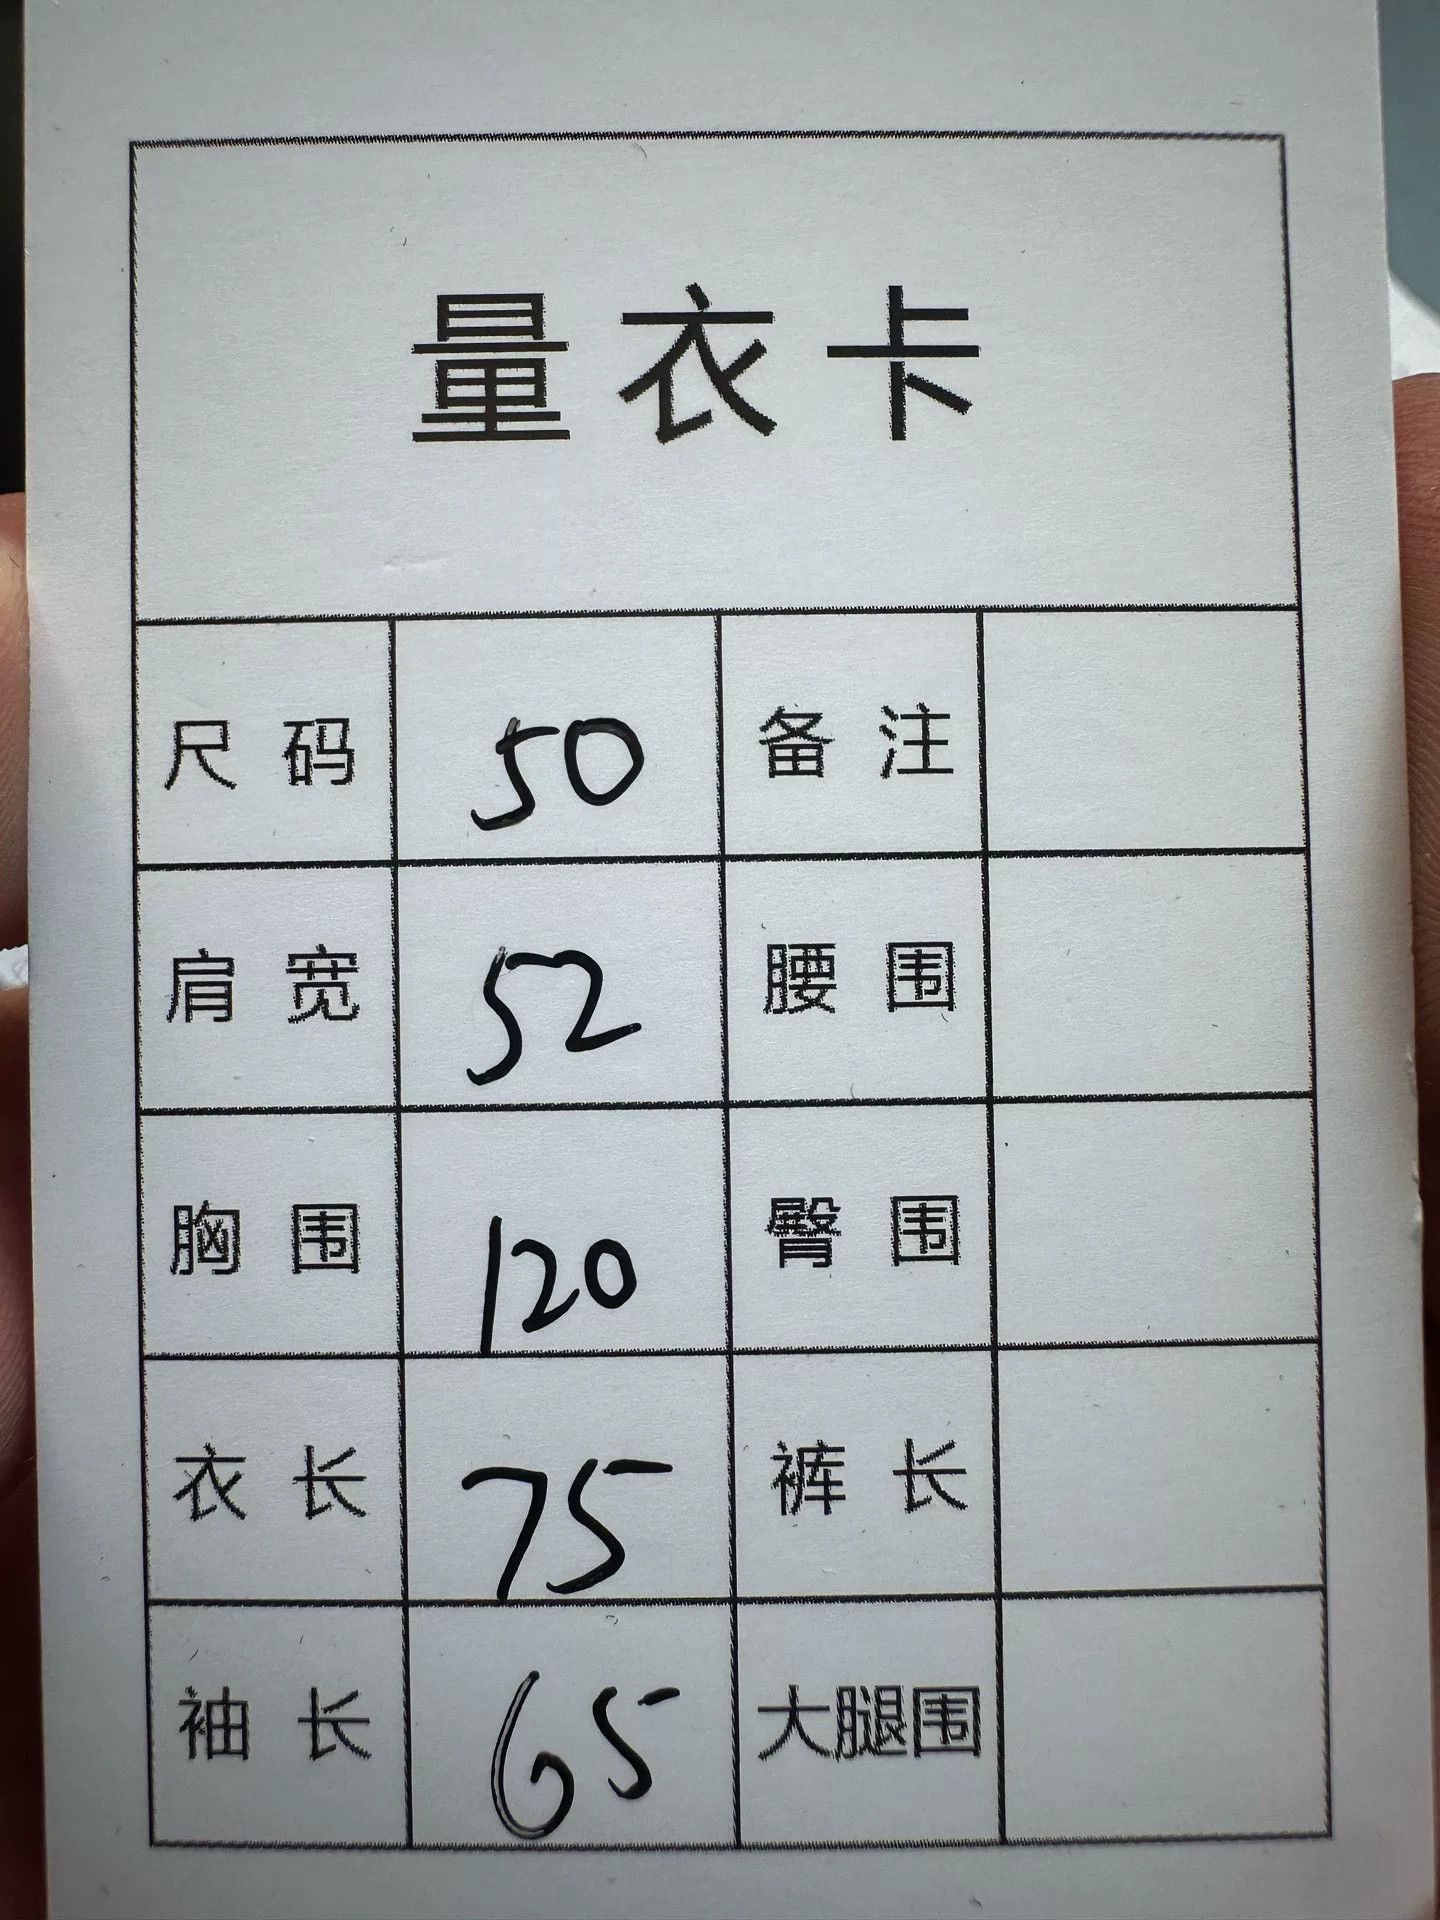 量衣卡
尺码 50 备注
肩宽 52 腰围
胸围 120 臀围
衣长 75 裤长
袖长 65 大腿围